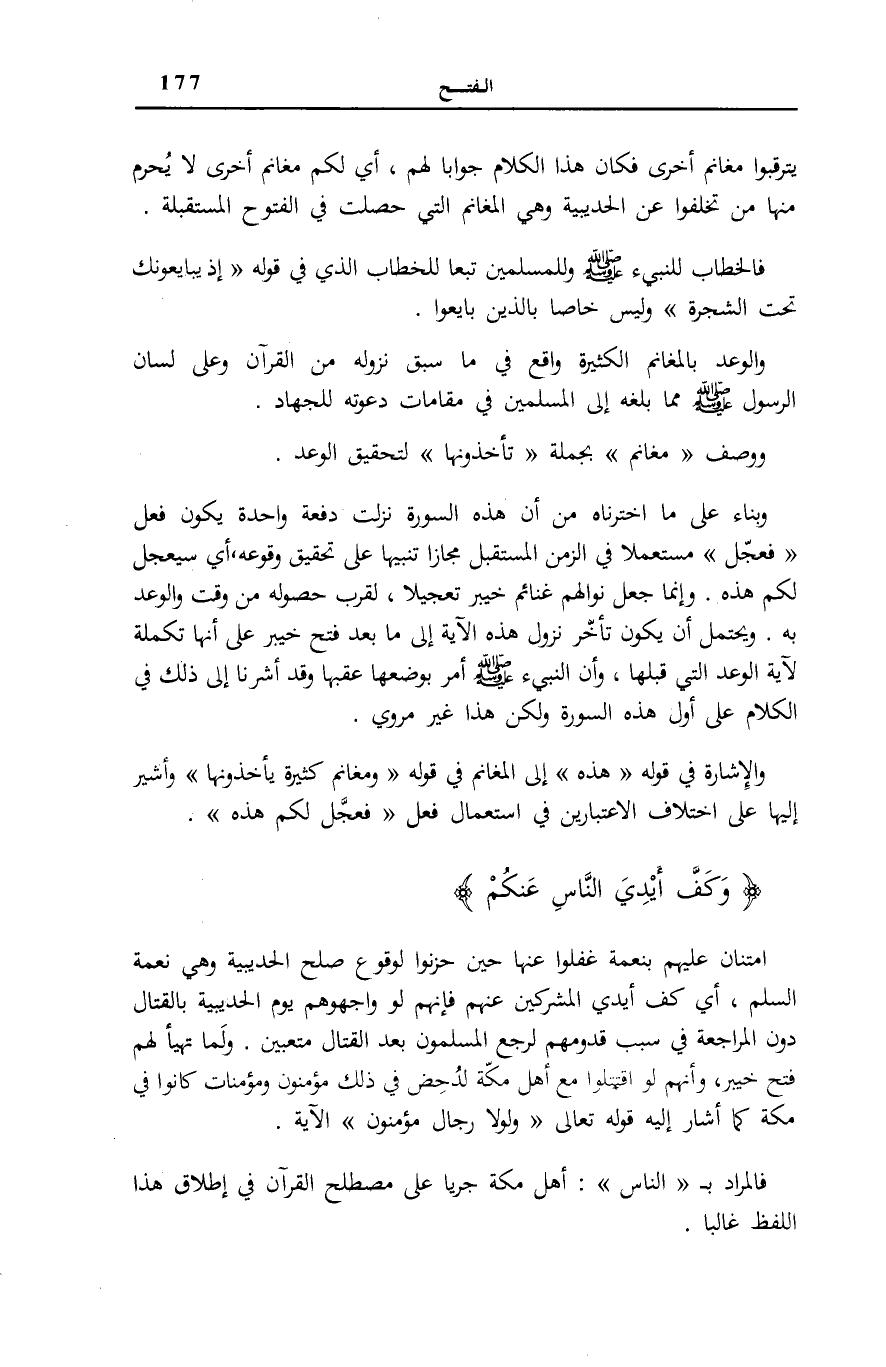 الفتح 177
يترقبوا مغانم أخرى فكان هذا الكلام جوابا لهم ، أي لكم مغانم أخرى لا يُحرم
منها من تخلفوا عن الحديبية وهي المغانم التي حصلت في الفتوح المستقبلة .
فالخطاب للنبيء ﷺ وللمسلمين تبعا للخطاب الذي في قوله « إذ يبايعونك
تحت الشجرة » وليس خاصا بالذين بايعوا .
والوعد بالمغانم الكثيرة واقع في ما سبق نزوله من القرآن وعلى لسان
الرسول ﷺ مما بلغه إلى المسلمين في مقامات دعوته للجهاد .
ووصف « مغانم » بجملة « تأخذونها » لتحقيق الوعد .
وبناء على ما اخترناه من أن هذه السورة نزلت دفعة واحدة يكون فعل
« فعجّل » مستعملا في الزمن المستقبل مجازا تنبيها على تحقيق وقوعه،أي سيعجل
لكم هذه . وإنما جعل نوالهم غنائم خيبر تعجيلا ، لقرب حصوله من وقت والوعد
به . ويحتمل أن يكون تأخّر نزول هذه الآية إلى ما بعد فتح خيبر على أنها تكملة
لآية الوعد التي قبلها ، وأن النبيء ﷺ أمر بوضعها عقبها وقد أشرنا إلى ذلك في
الكلام على أول هذه السورة ولكن هذا غير مروي .
والإشارة في قوله « هذه » إلى المغانم في قوله « ومغانم كثيرة يأخذونها » وأشير
إليها على اختلاف الاعتبارين في استعمال فعل « فعجَّل لكم هذه » .
﴿ وَكَفَّ أَيْدِيَ النَّاسِ عَنكُمْ ﴾
امتنان عليهم بنعمة غفلوا عنها حين حزنوا لوقوع صلح الحديبية وهي نعمة
السلم ، أي كف أيدي المشركين عنهم فإنهم لو واجهوهم يوم الحديبية بالقتال
دون المراجعة في سبب قدومهم لرجع المسلمون بعد القتال متعبين . ولَما تهيأ لهم
فتح خيبر، وأنهم لو اقتتلوا مع أهل مكّة لدُحِض في ذلك مؤمنون ومؤمنات كانوا في
مكة كما أشار إليه قوله تعالى « ولولا رجال مؤمنون » الآية .
فالمراد بـ « الناس » : أهل مكة جريا على مصطلح القرآن في إطلاق هذا
اللفظ غالبا .